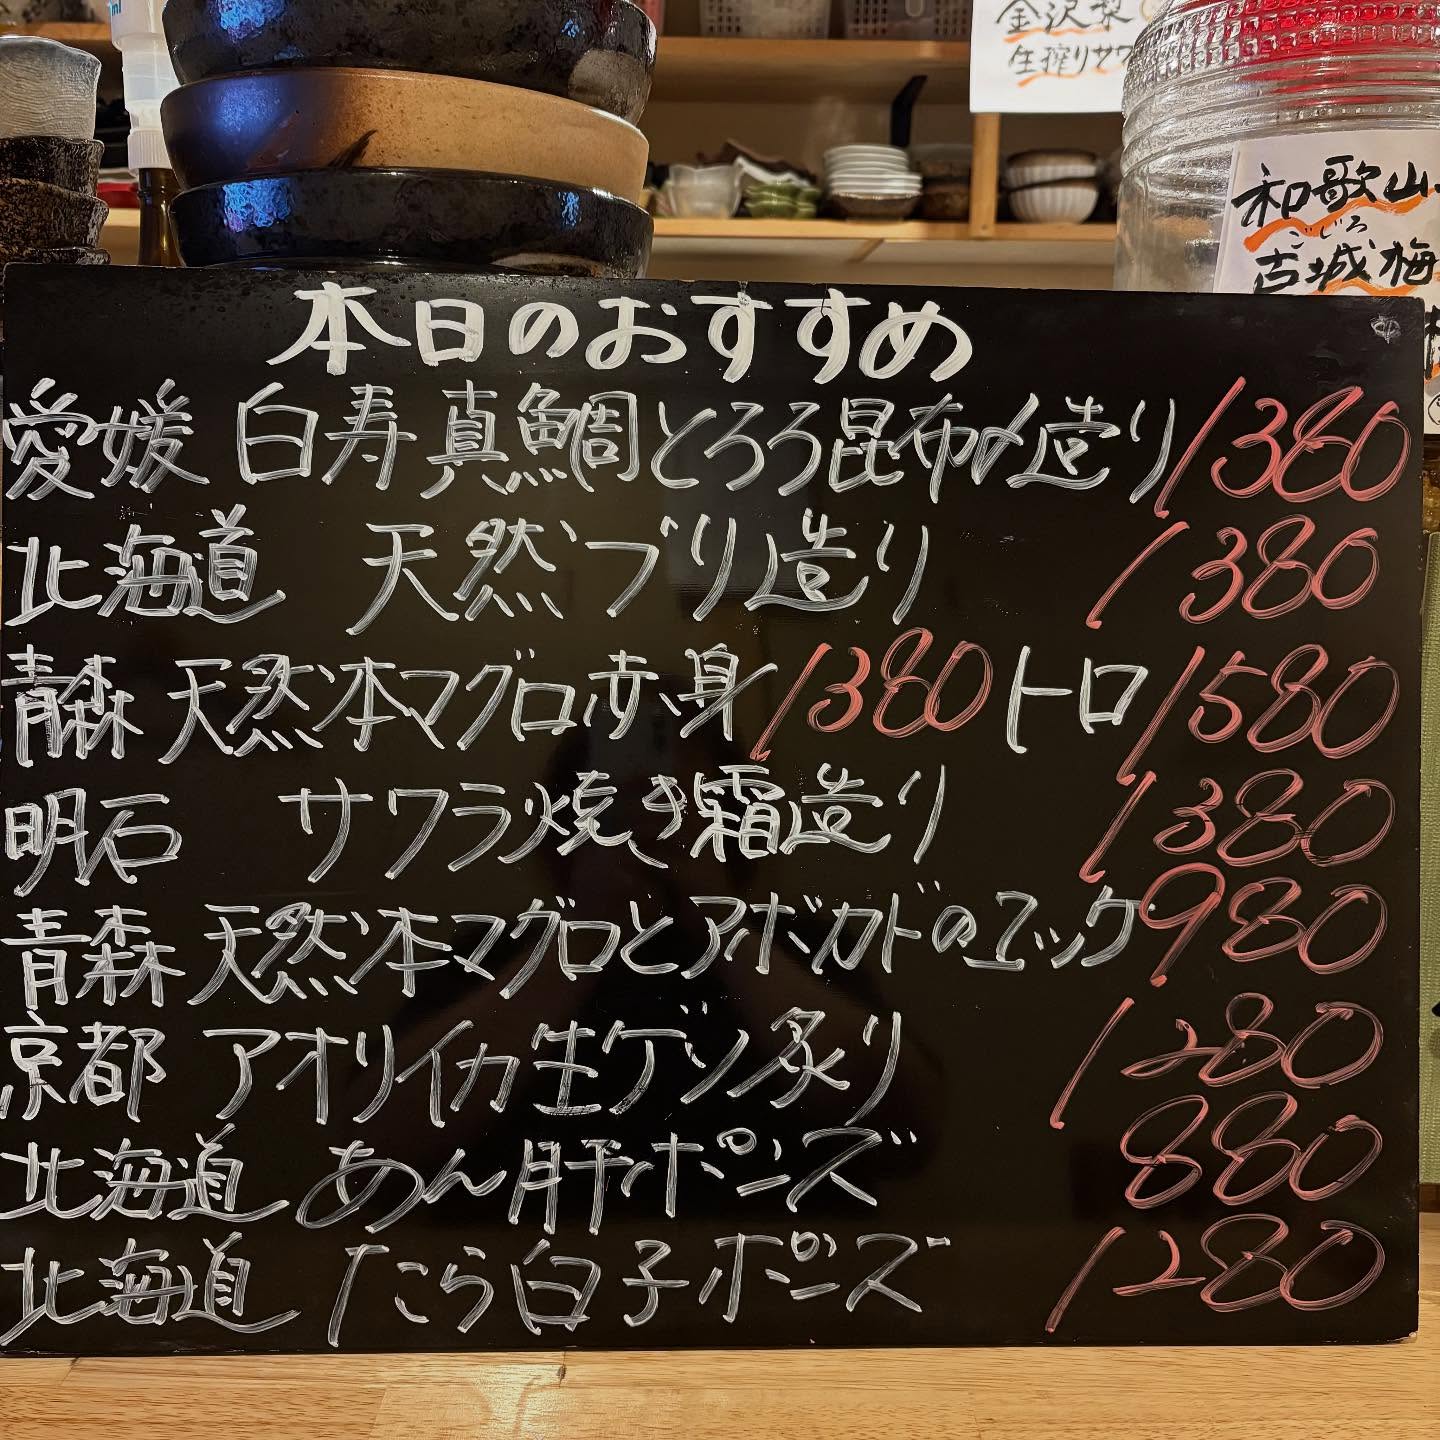 金沢梨
生搾りサワ
和歌山
ごじろ
古城梅
本日のおすすめ
愛媛 白寿真鯛とろろ昆布〆造り 1380
北海道 天然ブリ造り 1380
青森 天然本マグロ赤身 1380 トロ 1580
明石 サワラ焼き霜造り 1380
青森 天然本マグロとアボカドのユック 980
京都 アオリイカ生ゲソ炙り 1280
北海道 あん肝ポン酢ズ 880
北海道 たら白子ポンズ 1280